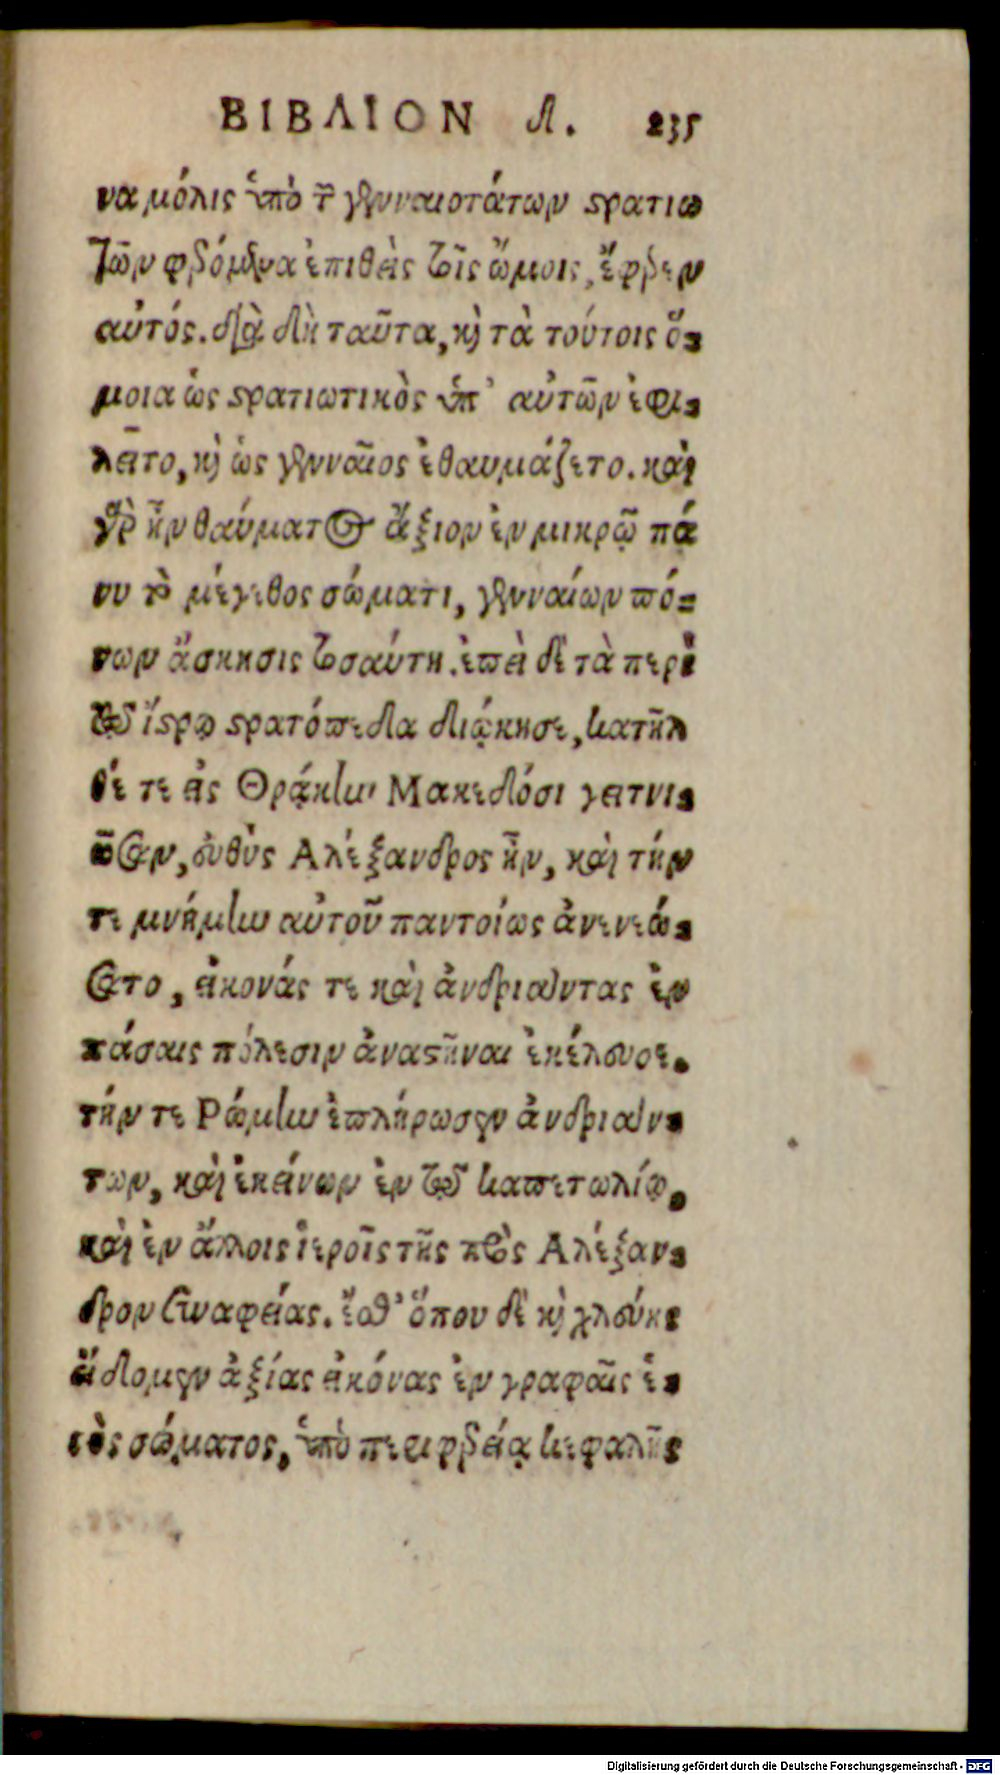 ΒΙΒΛΙΟΝ Δ. 235
να μόλις ὑπὸ τῶν γενναιοτάτων στρατιω
τῶν φερόμενα ἐπιθεὶς τοῖς ὤμοις, ἔφερεν
αὐτός. διὰ δὴ ταῦτα, καὶ τὰ τούτοις ὅ-
μοια ὡς στρατιωτικὸς ὑπ' αὐτῶν ἐφι-
λεῖτο, καὶ ὡς γενναῖος ἐθαυμάζετο. καὶ
γὰρ ἦν θαύματος ἄξιον ἐν μικρῷ πά
νυ τὸ μέγεθος σώματι, γενναίων πό-
νων ἄσκησις τοσαύτη. ἐπεὶ δὲ τὰ περὶ
τῷ ἴστρῳ στρατόπεδα διῴκησε, κατῆλ
θέ τε εἰς Θρᾴκην Μακεδόσι γειτνι-
ῶσαν, εὐθὺς Αλέξανδρος ἦν, καὶ τήν
τε μνήμην αὐτοῦ παντοίως ἀνενεώ-
σατο, εἰκονάς τε καὶ ἀνδριάντας ἐν
πάσαις πόλεσιν ἀναστῆναι ἐκέλευσε.
τήν τε Ρώμην ἐπλήρωσεν ἀνδριάν-
των, καὶ ἐκείνων ἐν τῷ καπετωλίῳ,
καὶ ἐν ἄλλοις ἱεροῖς τῆς πρὸς Αλέξαν-
δρον συναφείας. ἔσθ' ὅπου δὲ καὶ χλεύης
εἴδομεν ἀξίας εἰκόνας ἐν γραφαῖς ἑ-
νὸς σώματος, ὑπὸ περιφερείᾳ κεφαλῆς
Digitalisierung gefördert durch die Deutsche Forschungsgemeinschaft - DFG